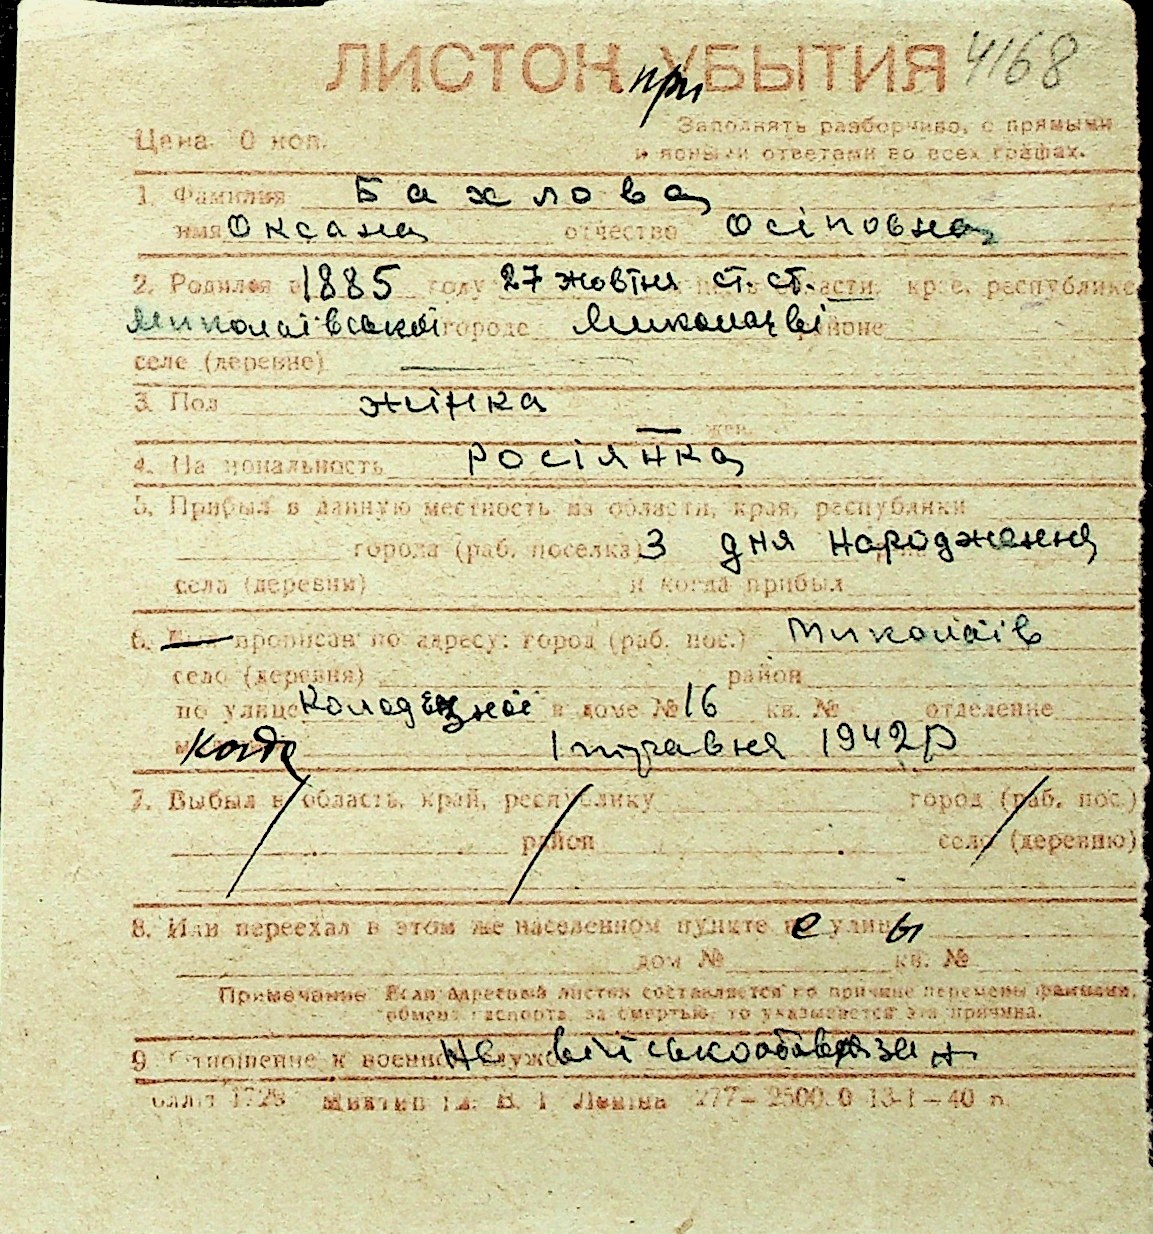 ЛИСТОК при УБЫТИЯ 4168
Цена 0 коп. Заполнять разборчиво, с прямыми
и ясными ответами во всех графах.
1. Фамилия Бахлова
имя Оксана отчество Осіповна
2. Родился в 1885 году 27 жовтня ст. ст. области, крае, республике
Миколаївської городе Миколаєві районе
селе (деревне) —
3. Пол жінка
— жен.
4. Национальность росіянка
5. Прибыл в данную местность из области, края, республики
города (раб. поселка) З дня народження
села (деревни) и когда прибыл
6. прописан по адресу: город (раб. пос.) Миколаїв
село (деревня) район
по улице в доме № 16 кв. № отделение
когда 1 травня 1942 р
7. Выбыл в область, край, республику город (раб. пос.)
район село (деревню)
8. Или переехал в этом же населенном пункте е улицы
дом № кв. №
Примечание Если Адресный листок составляется по причине перемены фамилии,
обмена паспорта, за смертью, то указывается эта причина.
9 Отношение к военной служб не військообовязан
1728 В. І Леніна 277—2500.0 13-1—40 п.